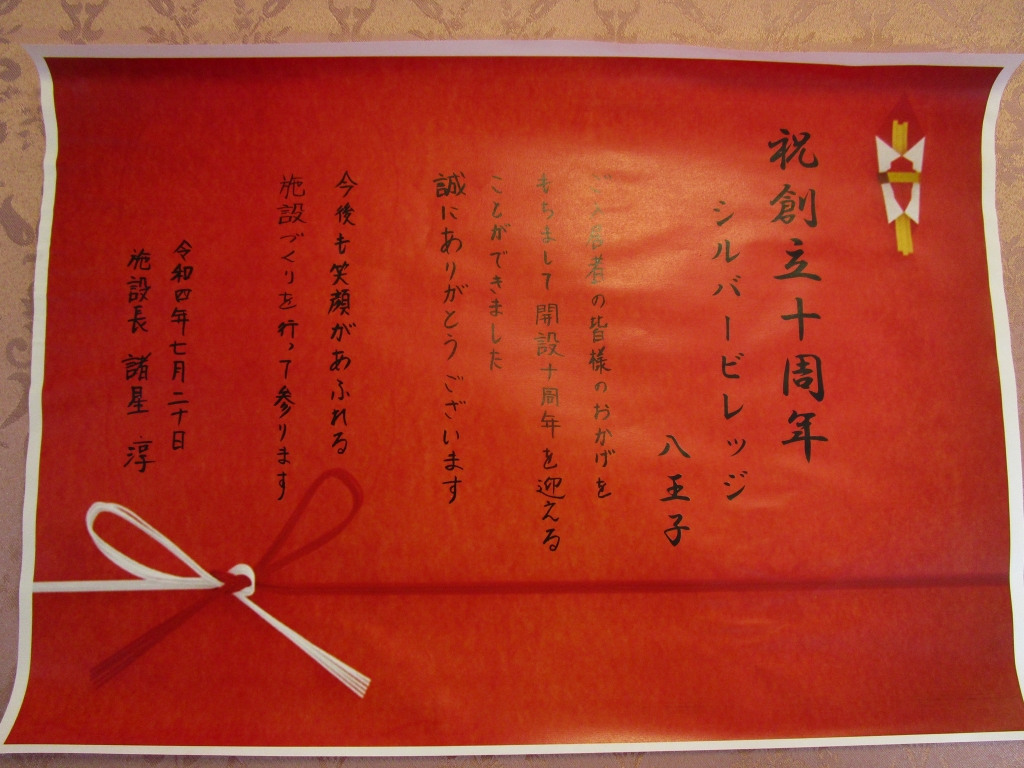 祝創立十周年
シルバービレッジ
八王子
ご入居者の皆様のおかげを
もちまして開設十周年を迎える
ことができました
誠にありがとうございます
今後も笑顔があふれる
施設づくりを行って参ります
令和四年七月二十日
施設長 諸星 淳